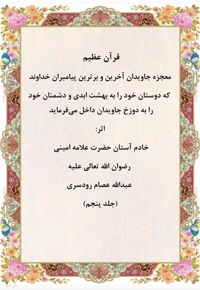 قرآن عظیم
معجزه جاویدان آخرین و برترین پیامبران خداوند
که دوستان خود را به بهشت ابدی و دشمنان خود
را به دوزخ جاویدان داخل می‌فرماید
اثر:
خادم آستان حضرت علامه امینی
رضوان الله تعالی علیه
عبدالله عصام رودسری
(جلد پنجم)